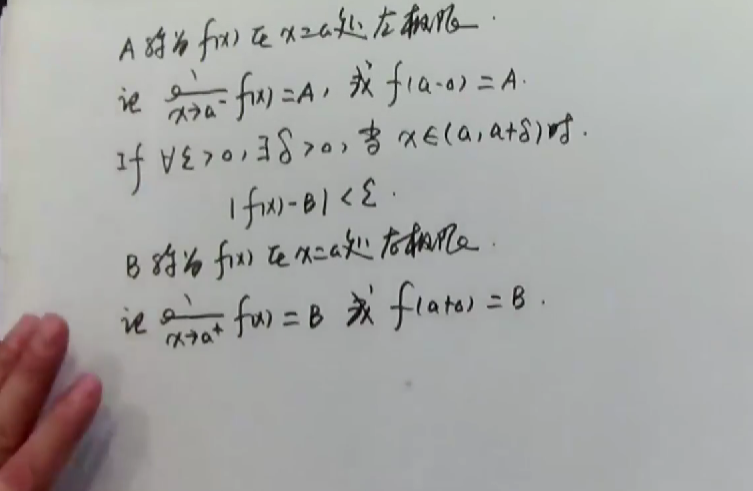 A 称为 f(x) 在 x=a处 左极限.
记 lim x→a⁻ f(x)=A, 或 f(a-0)=A.
If ∀ε>0,∃δ>0, 当 x∈(a,a+δ)时.
|f(x)-B|<ε.
B 称为 f(x) 在 x=a处 右极限.
记 lim x→a⁺ f(x)=B 或 f(a+0)=B.